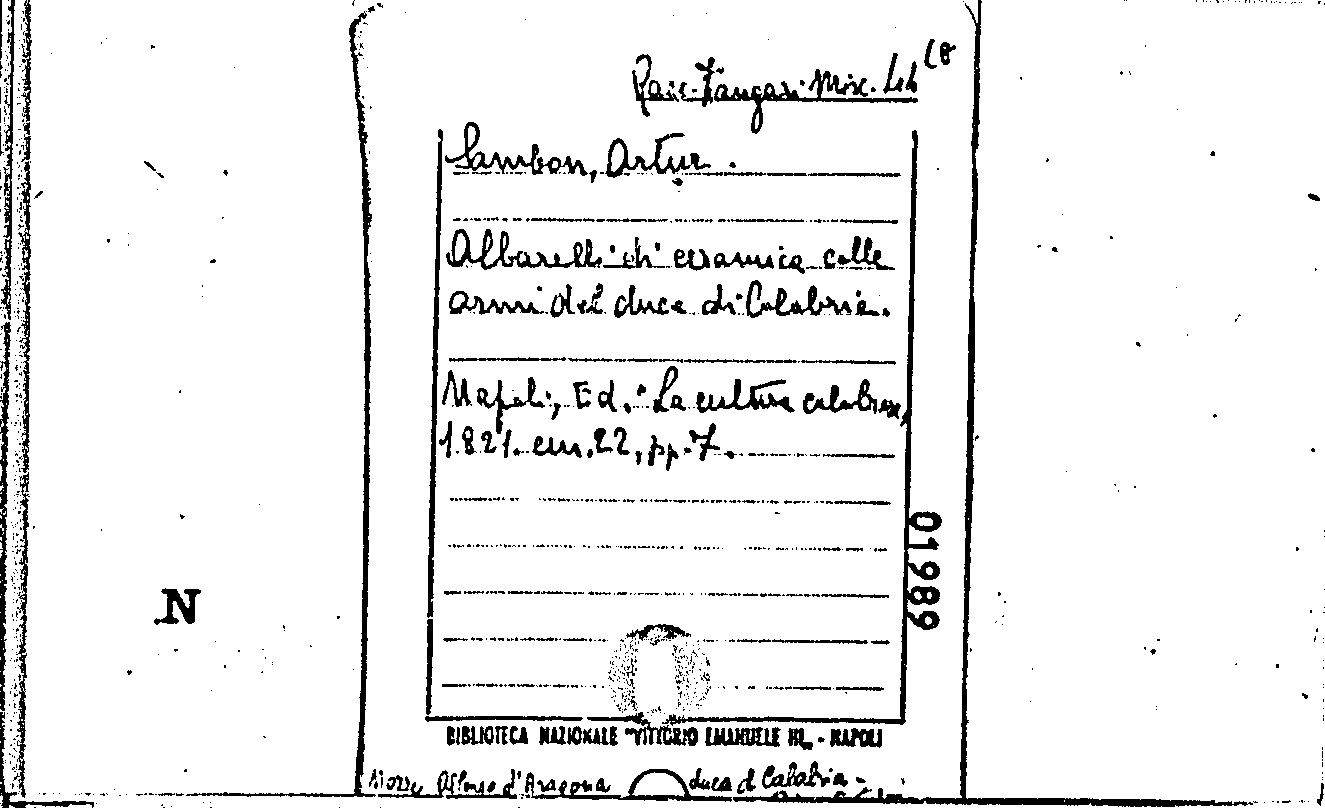 Racc. Zangari Misc. Leh C8
Sambon, Artur.
Albarelli di ceramica colle
armi del duca di Calabria.
Napoli, Ed. "La cultura calabrese,
1921. cm. 22, pp. 7.
01989
N
BIBLIOTECA NAZIONALE "VITTORIO EMANUELE III„ - NAPOLI
Nozze Alfonso d'Aragona duca d Calabria -